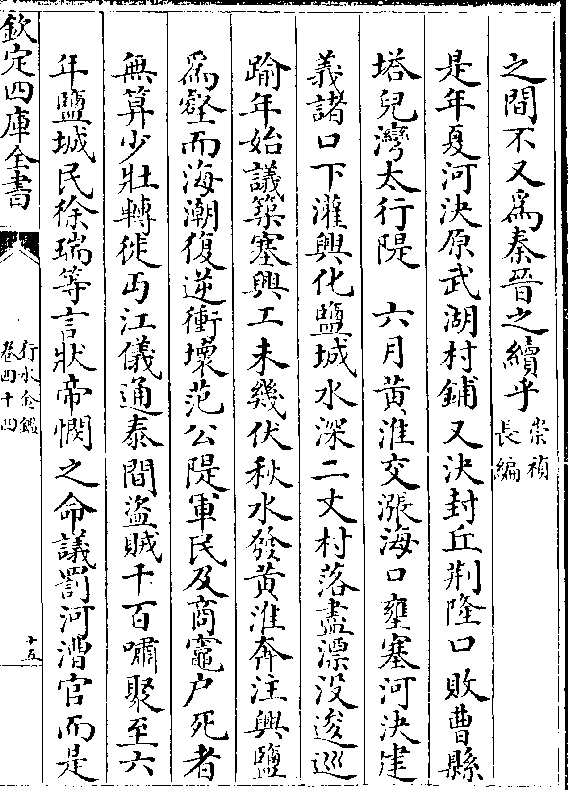 之間不又為秦晉之續乎崇禎長編
是年夏河決原武湖村鋪又決封丘荆隆口敗曹縣
塔兒灣太行隄　六月黃淮交漲海口壅塞河決建
義諸口下灌興化鹽城水深二丈村落盡漂没逡巡
踰年始議築塞興工未幾伏秋水發黃淮奔注興鹽
為壑而海潮復逆衝壞范公隄軍民及商竈户死者
無算少壯轉徙丐江儀通泰間盜賊千百嘯聚至六
年鹽城民徐瑞等言狀帝憫之命議罰河漕官而是
欽定四庫全書
行水金鑑
卷四十四
十五